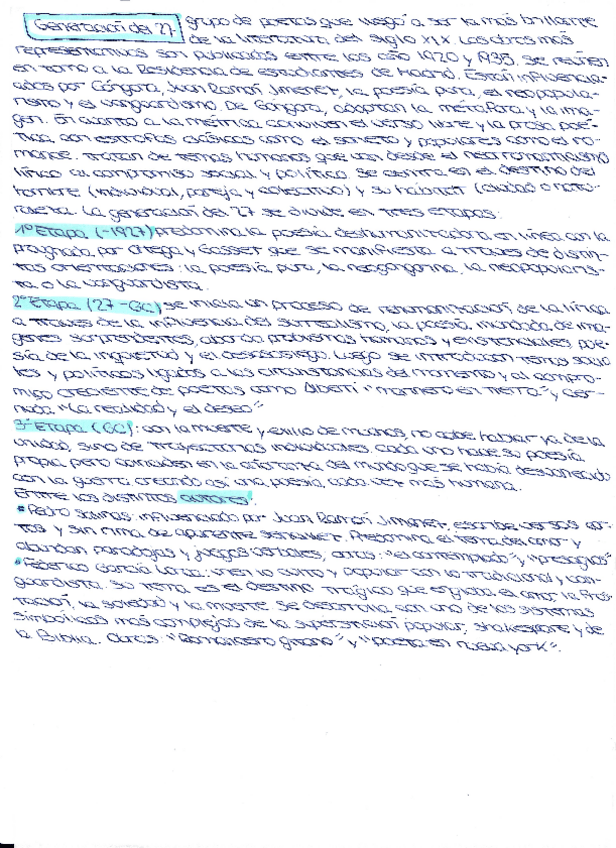 Generación del 27 grupo de poetas que llegó a ser la más brillante
de la literatura del siglo XIX. Las obras más
representativas son publicadas entre los año 1920 y 1935. Se reúnen
en torno a la Residencia de estudiantes de Madrid. Están influencia-
ados por Góngora, Juan Ramón Jiménez, la poesía pura, el neopopula-
rismo y el vanguardismo. De Góngora, adoptan la metáfora y la ima-
gen. En cuanto a la métrica conviven el verso libre y la prosa poé-
tica, con estrofas clásicas como el soneto y populares como el ro-
mance. Tratan de temas humanos que van desde el neorromanticismo
lírico al compromiso social y político. Se centra en el destino del
hombre (individual, pareja y colectivo) y su hábitat (ciudad o natu-
raleza. La generación del 27 se divide en tres etapas:
1º Etapa (-1927) predomina la poesía deshumanizadora en línea con la
propugnada por Ortega y Gasset que se manifiesta a través de distin-
tas orientaciones: la poesía pura, la neogongorina, la neopopularis-
ta o la vanguardista.
2º Etapa (27-GC) se inicia un proceso de rehumanización de la lírica
a través de la influencia del surrealismo, la poesía, inundada de imá-
genes sorprendentes, aborda problemas humanos y existenciales, poe-
sía de la inquietud y el desasosiego. Luego se introducen temas socia-
les y políticos ligados a las circunstancias del momento y al compro-
miso creciente de poetas como Alberti "marinero en tierra" y Cer-
nuda "La realidad y el deseo"
3º Etapa (GC): con la muerte y exilio de muchos, no cabe hablar ya de la
unidad, sino de trayectorias individuales. Cada uno hace su poesía
propia pero coinciden en la añoranza del mundo que se había desvanecido
con la guerra creando así una poesía cada vez más humana.
Entre los distintos autores:
* Pedro Salinas: influenciado por Juan Ramón Jiménez, escribe versos cor-
tos y sin rima de aparente sencillez. Predomina el tema del amor y
abundan paradojas y juegos verbales, obras: "el contemplado" y "presagios"
* Federico García Lorca: unen lo culto y popular con lo tradicional y van-
guardista. Su tema es el destino trágico que engloba el amor, la frus-
tración, la soledad y la muerte. Se desarrolla con uno de los sistemas
simbólicos más complejos de la superstición popular, Shakespeare y de
la Biblia. Obras: "Romancero gitano" y "poeta en nueva york".